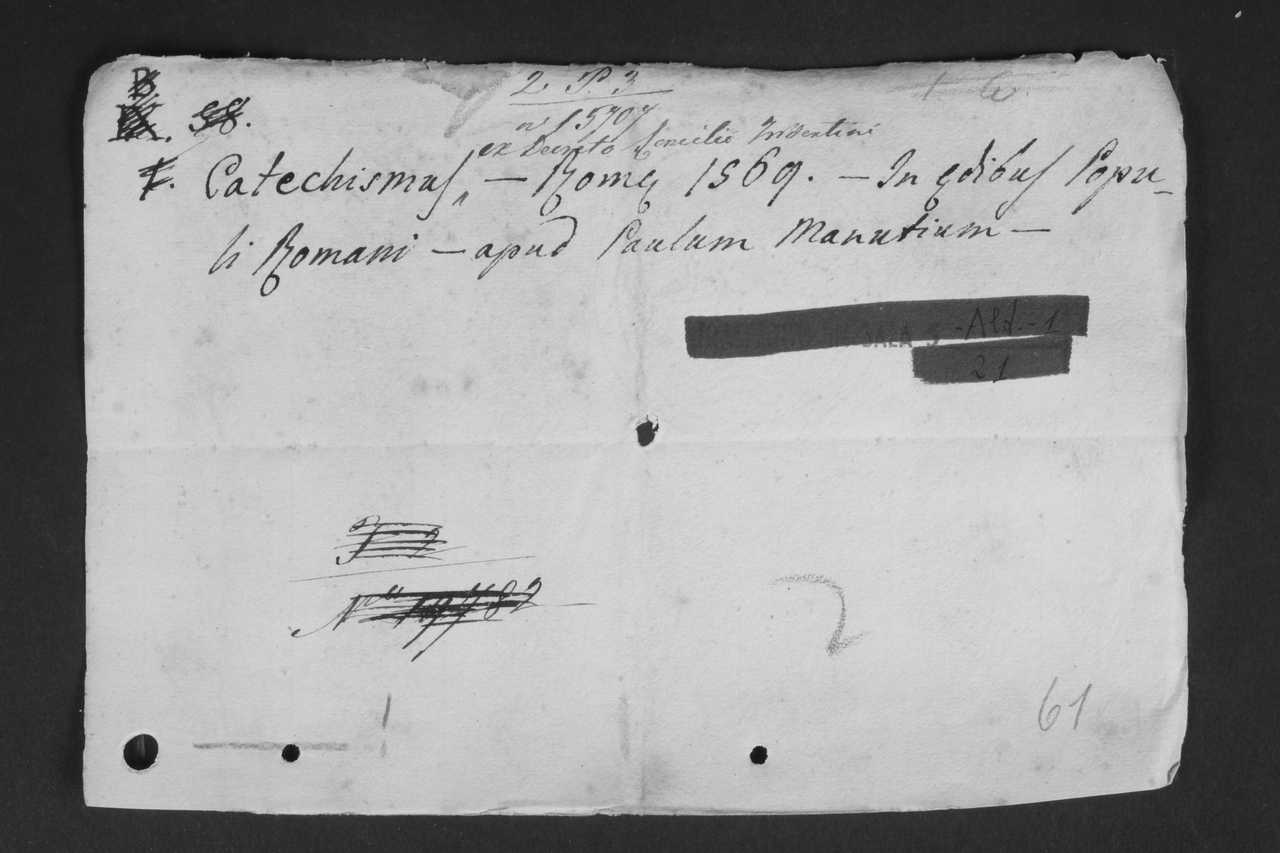 B.
2. P. 3
58.
nº 15707
ex Decreto Concilii Tridentini
Catechismus — Romę 1569. — In ędibus Popu-
li Romani — apud Paulum Manutium —
SALA 5 -Ald.-1
21
Nº 19782
2
61